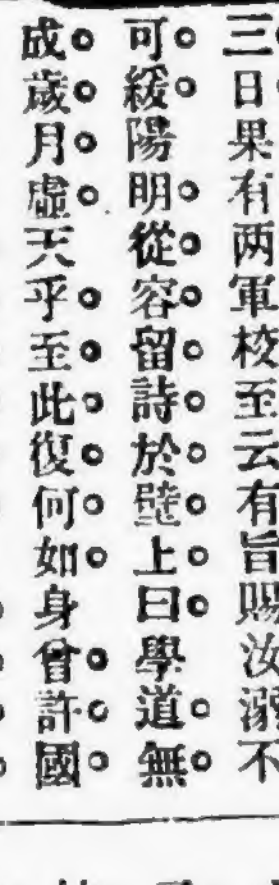 三日果有两軍校至云有旨賜汝溺不
可緩陽明從容留詩於壁上曰學道無
成歲月虛天乎至此復何如身曾許國